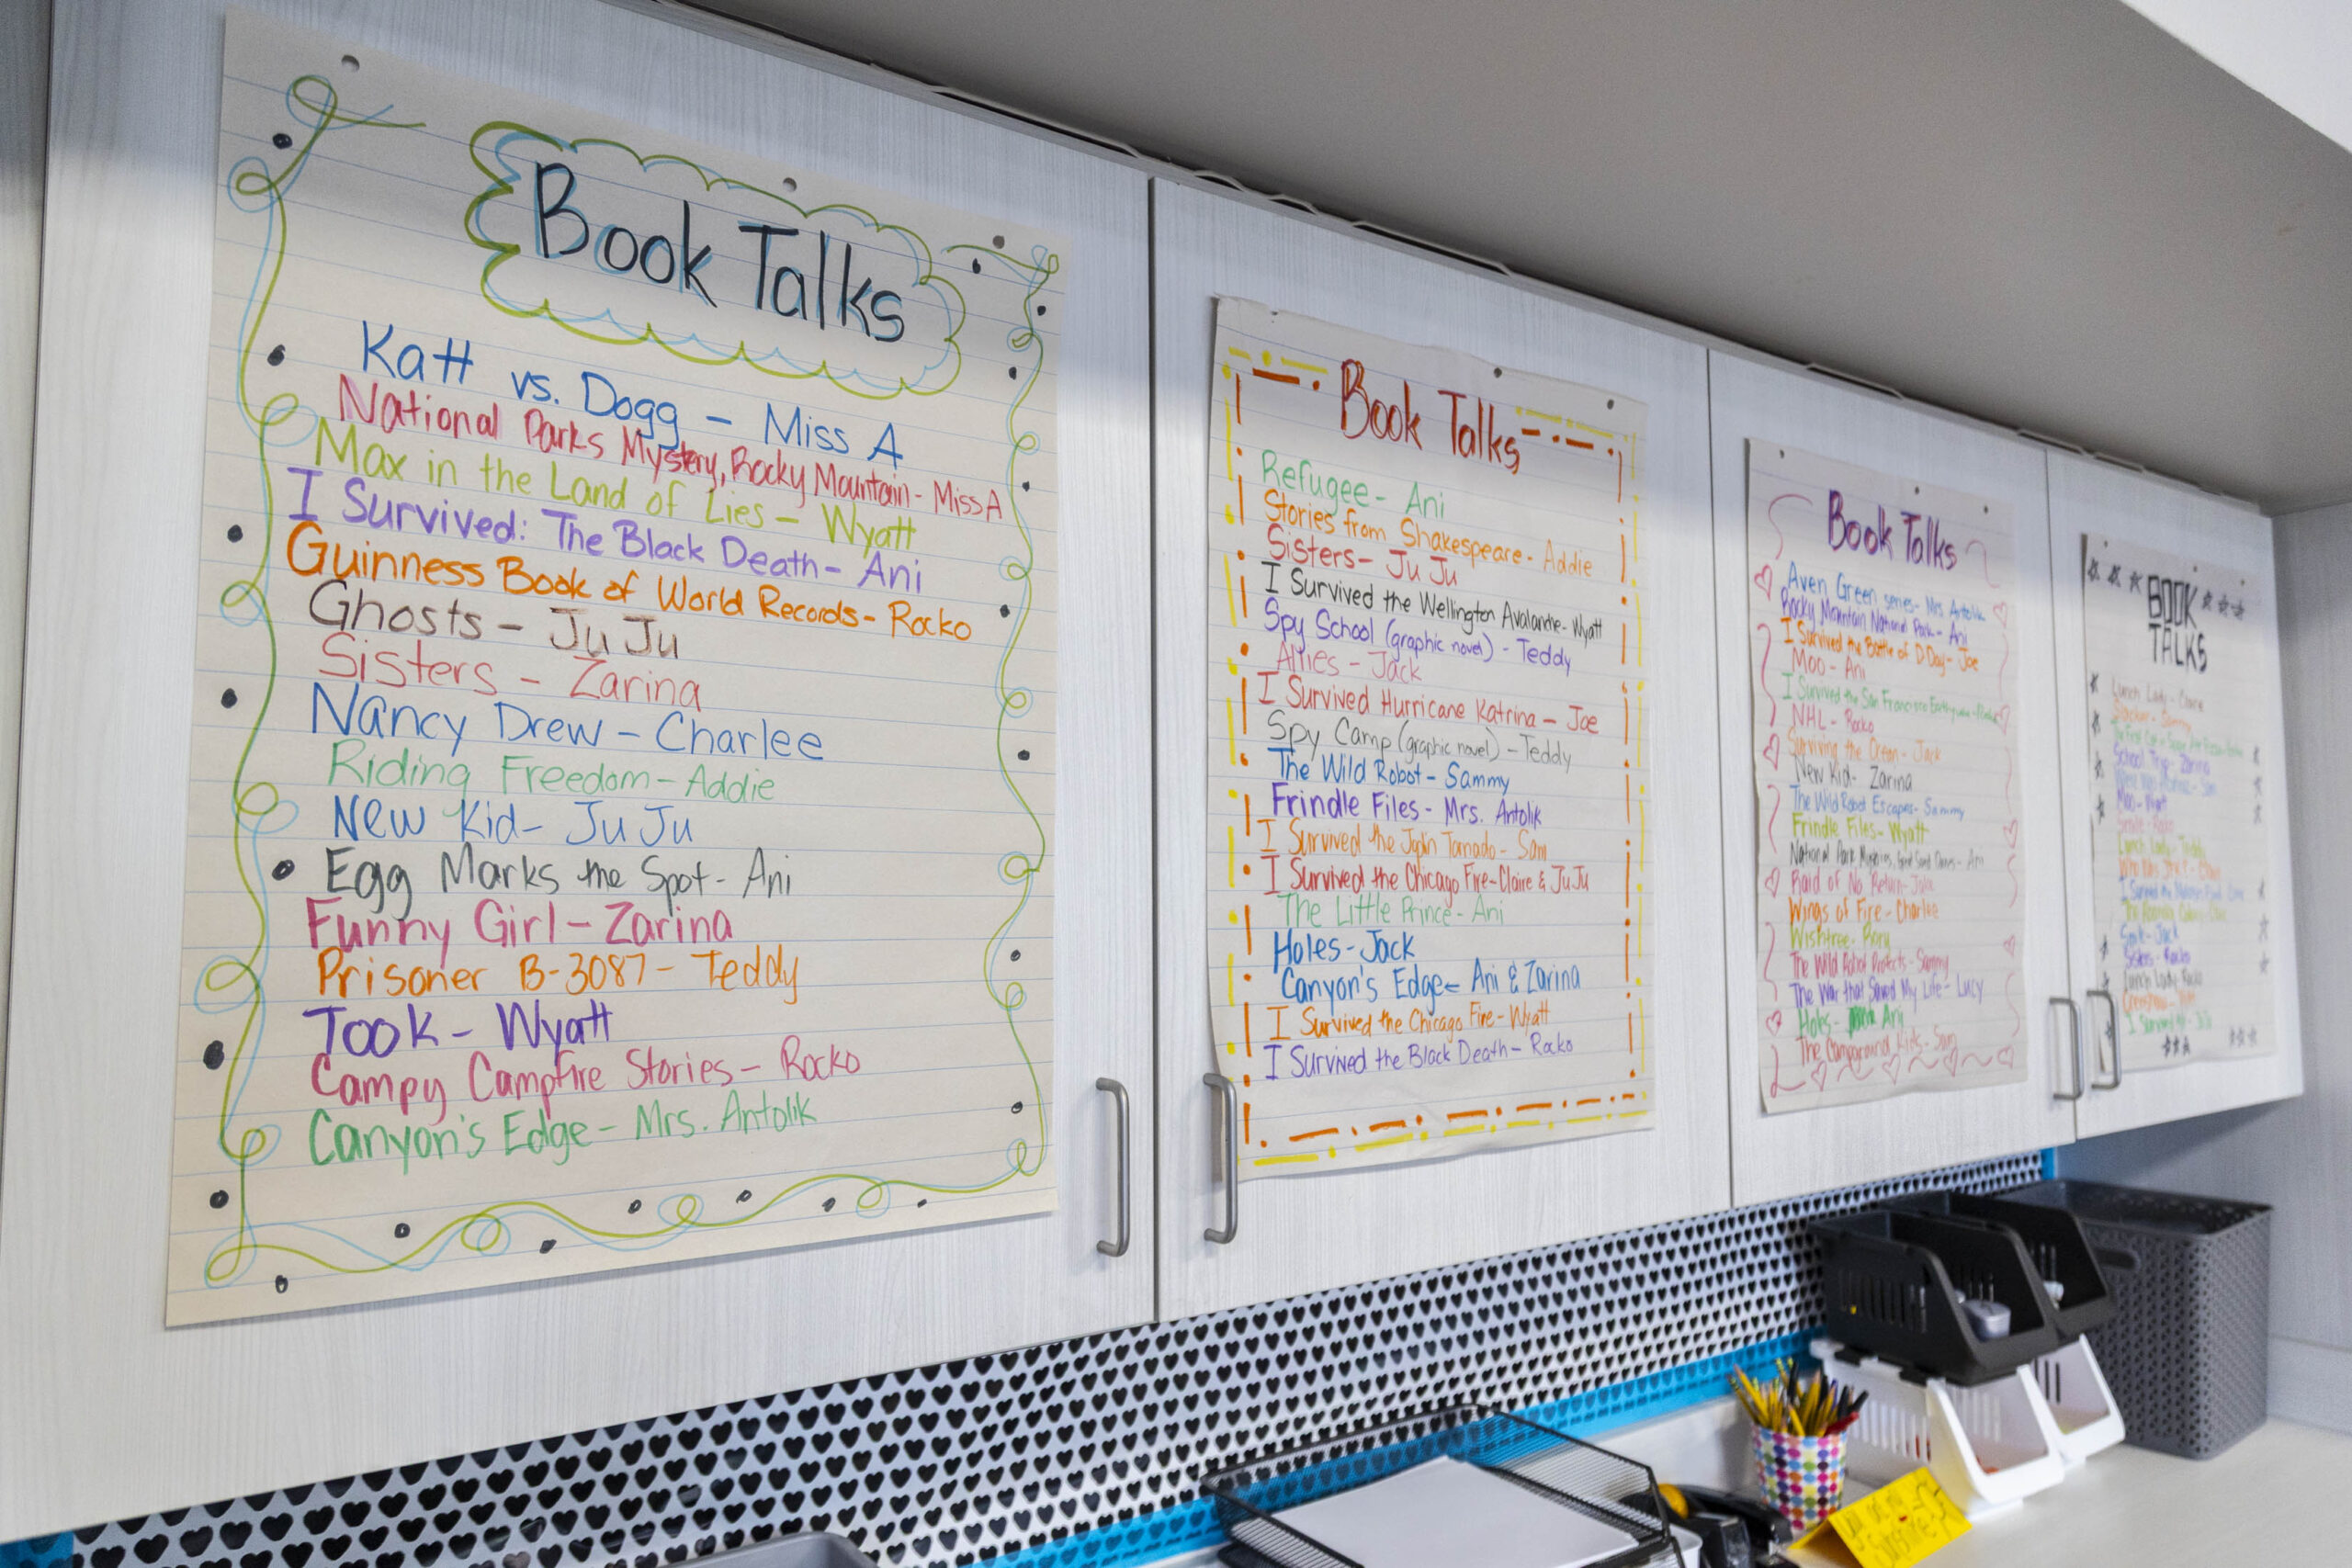 Book Talks
Katt vs. Dogg - Miss A
National Parks Mystery, Rocky Mountain - Miss A
Max in the Land of Lies - Wyatt
I Survived: The Black Death - Ani
Guinness Book of World Records - Rocko
Ghosts - JuJu
Sisters - Zarina
Nancy Drew - Charlee
Riding Freedom - Addie
New Kid - JuJu
Egg Marks the Spot - Ani
Funny Girl - Zarina
Prisoner B-3087 - Teddy
Took - Wyatt
Campy Campfire Stories - Rocko
Canyon's Edge - Mrs. Antolik
Book Talks
Refugee - Ani
Stories from Shakespeare - Addie
Sisters - JuJu
I Survived the Wellington Avalanche - Wyatt
Spy School (graphic novel) - Teddy
Allies - Jack
I Survived Hurricane Katrina - Joe
Spy Camp (graphic novel) - Teddy
The Wild Robot - Sammy
Frindle Files - Mrs. Antolik
I Survived the Joplin Tornado - Sam
I Survived the Chicago Fire - Claire & JuJu
The Little Prince - Ani
Holes - Jack
Canyon's Edge - Ani & Zarina
I Survived the Chicago Fire - Wyatt
I Survived the Black Death - Rocko
Book Talks
Aven Green series - Mrs. Antolik
Rocky Mountain National Park - Ani
I Survived the Battle of D Day - Joe
Moo - Ani
I Survived the San Francisco
NHL - Rocko
Surviving the Ocean - Jack
New Kid - Zarina
The Wild Robot Escapes - Sammy
Frindle Files - Wyatt
National Park Mysteries, Sand - Ani
Raid of No Return
Wings of Fire - Charlee
Wishtree - Rory
The Wild Robot Protects - Sammy
The War that Saved My Life - Lucy
Holes - Ani
The Campground Kids - Sam
BOOK
TALKS
Lunch Lady - Claire
School Trip - Zarina
Lunch Lady - Teddy
Sisters - Rocko
Lunch Lady Rocko